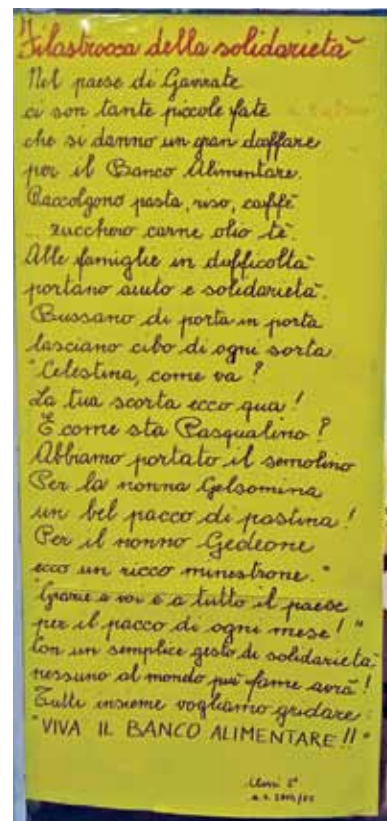 Filastrocca della solidarietà
Nel paese di Gavirate
ci son tante piccole fate
che si danno un gran daffare
per il Banco Alimentare.
Raccolgono pasta, riso, caffè
... zucchero carne olio tè.
Alle famiglie in difficoltà
portano aiuto e solidarietà.
Bussano di porta in porta
lasciano cibo di ogni sorta.
"Celestina, come va?
La tua scorta ecco qua!
E come sta Pasqualino?
Abbiamo portato il semolino
Per la nonna Gelsomina
un bel pacco di pastina!
Per il nonno Gedeone
ecco un ricco minestrone."
"Grazie a voi e a tutto il paese
per il pacco di ogni mese!"
Con un semplice gesto di solidarietà
nessuno al mondo più fame avrà!
Tutti insieme vogliamo gridare:
"VIVA IL BANCO ALIMENTARE!!"
a.s.